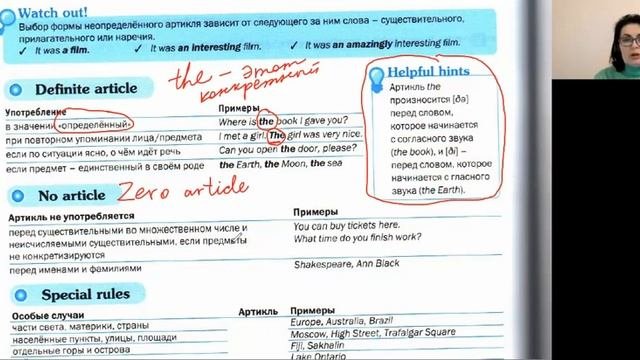 Watch out!
Выбор формы неопределённого артикля зависит от следующего за ним слова – существительного,
прилагательного или наречия.
✓ It was a film. ✓ It was an interesting film. ✓ It was an amazingly interesting film.
Definite article
the – этот
конкретный
Helpful hints
Употребление Примеры
в значении «определённый» Where is the book I gave you?
при повторном упоминании лица/предмета I met a girl. The girl was very nice.
если по ситуации ясно, о чём идёт речь Can you open the door, please?
если предмет – единственный в своём роде the Earth, the Moon, the sea
Артикль the
произносится [ðə]
перед словом,
которое начинается
с согласного звука
(the book), и [ði] –
перед словом, которое
начинается с гласного
звука (the Earth).
No article
Zero article
Артикль не употребляется Примеры
перед существительными во множественном числе и You can buy tickets here.
неисчисляемыми существительными, если предметы What time do you finish work?
не конкретизируются
перед именами и фамилиями Shakespeare, Ann Black
Special rules
Особые случаи Артикль Примеры
части света, материки, страны Europe, Australia, Brazil
населённые пункты, улицы, площади Moscow, High Street, Trafalgar Square
отдельные горы и острова Fiji, Sakhalin
Lake Ontario